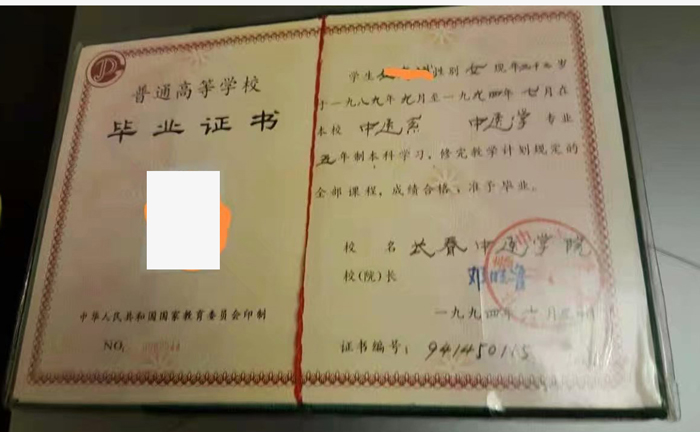 普通高等学校
毕业证书
中华人民共和国国家教育委员会印制
NO.
学生 性别 女 现年 岁
于一九八九年九月至一九九四年七月在
本校 中医系 中医学 专业
五年制本科学习，修完教学计划规定的
全部课程，成绩合格，准予毕业。
校 名 长春中医学院
校(院)长
一九九四年七月
证书编号：941450115